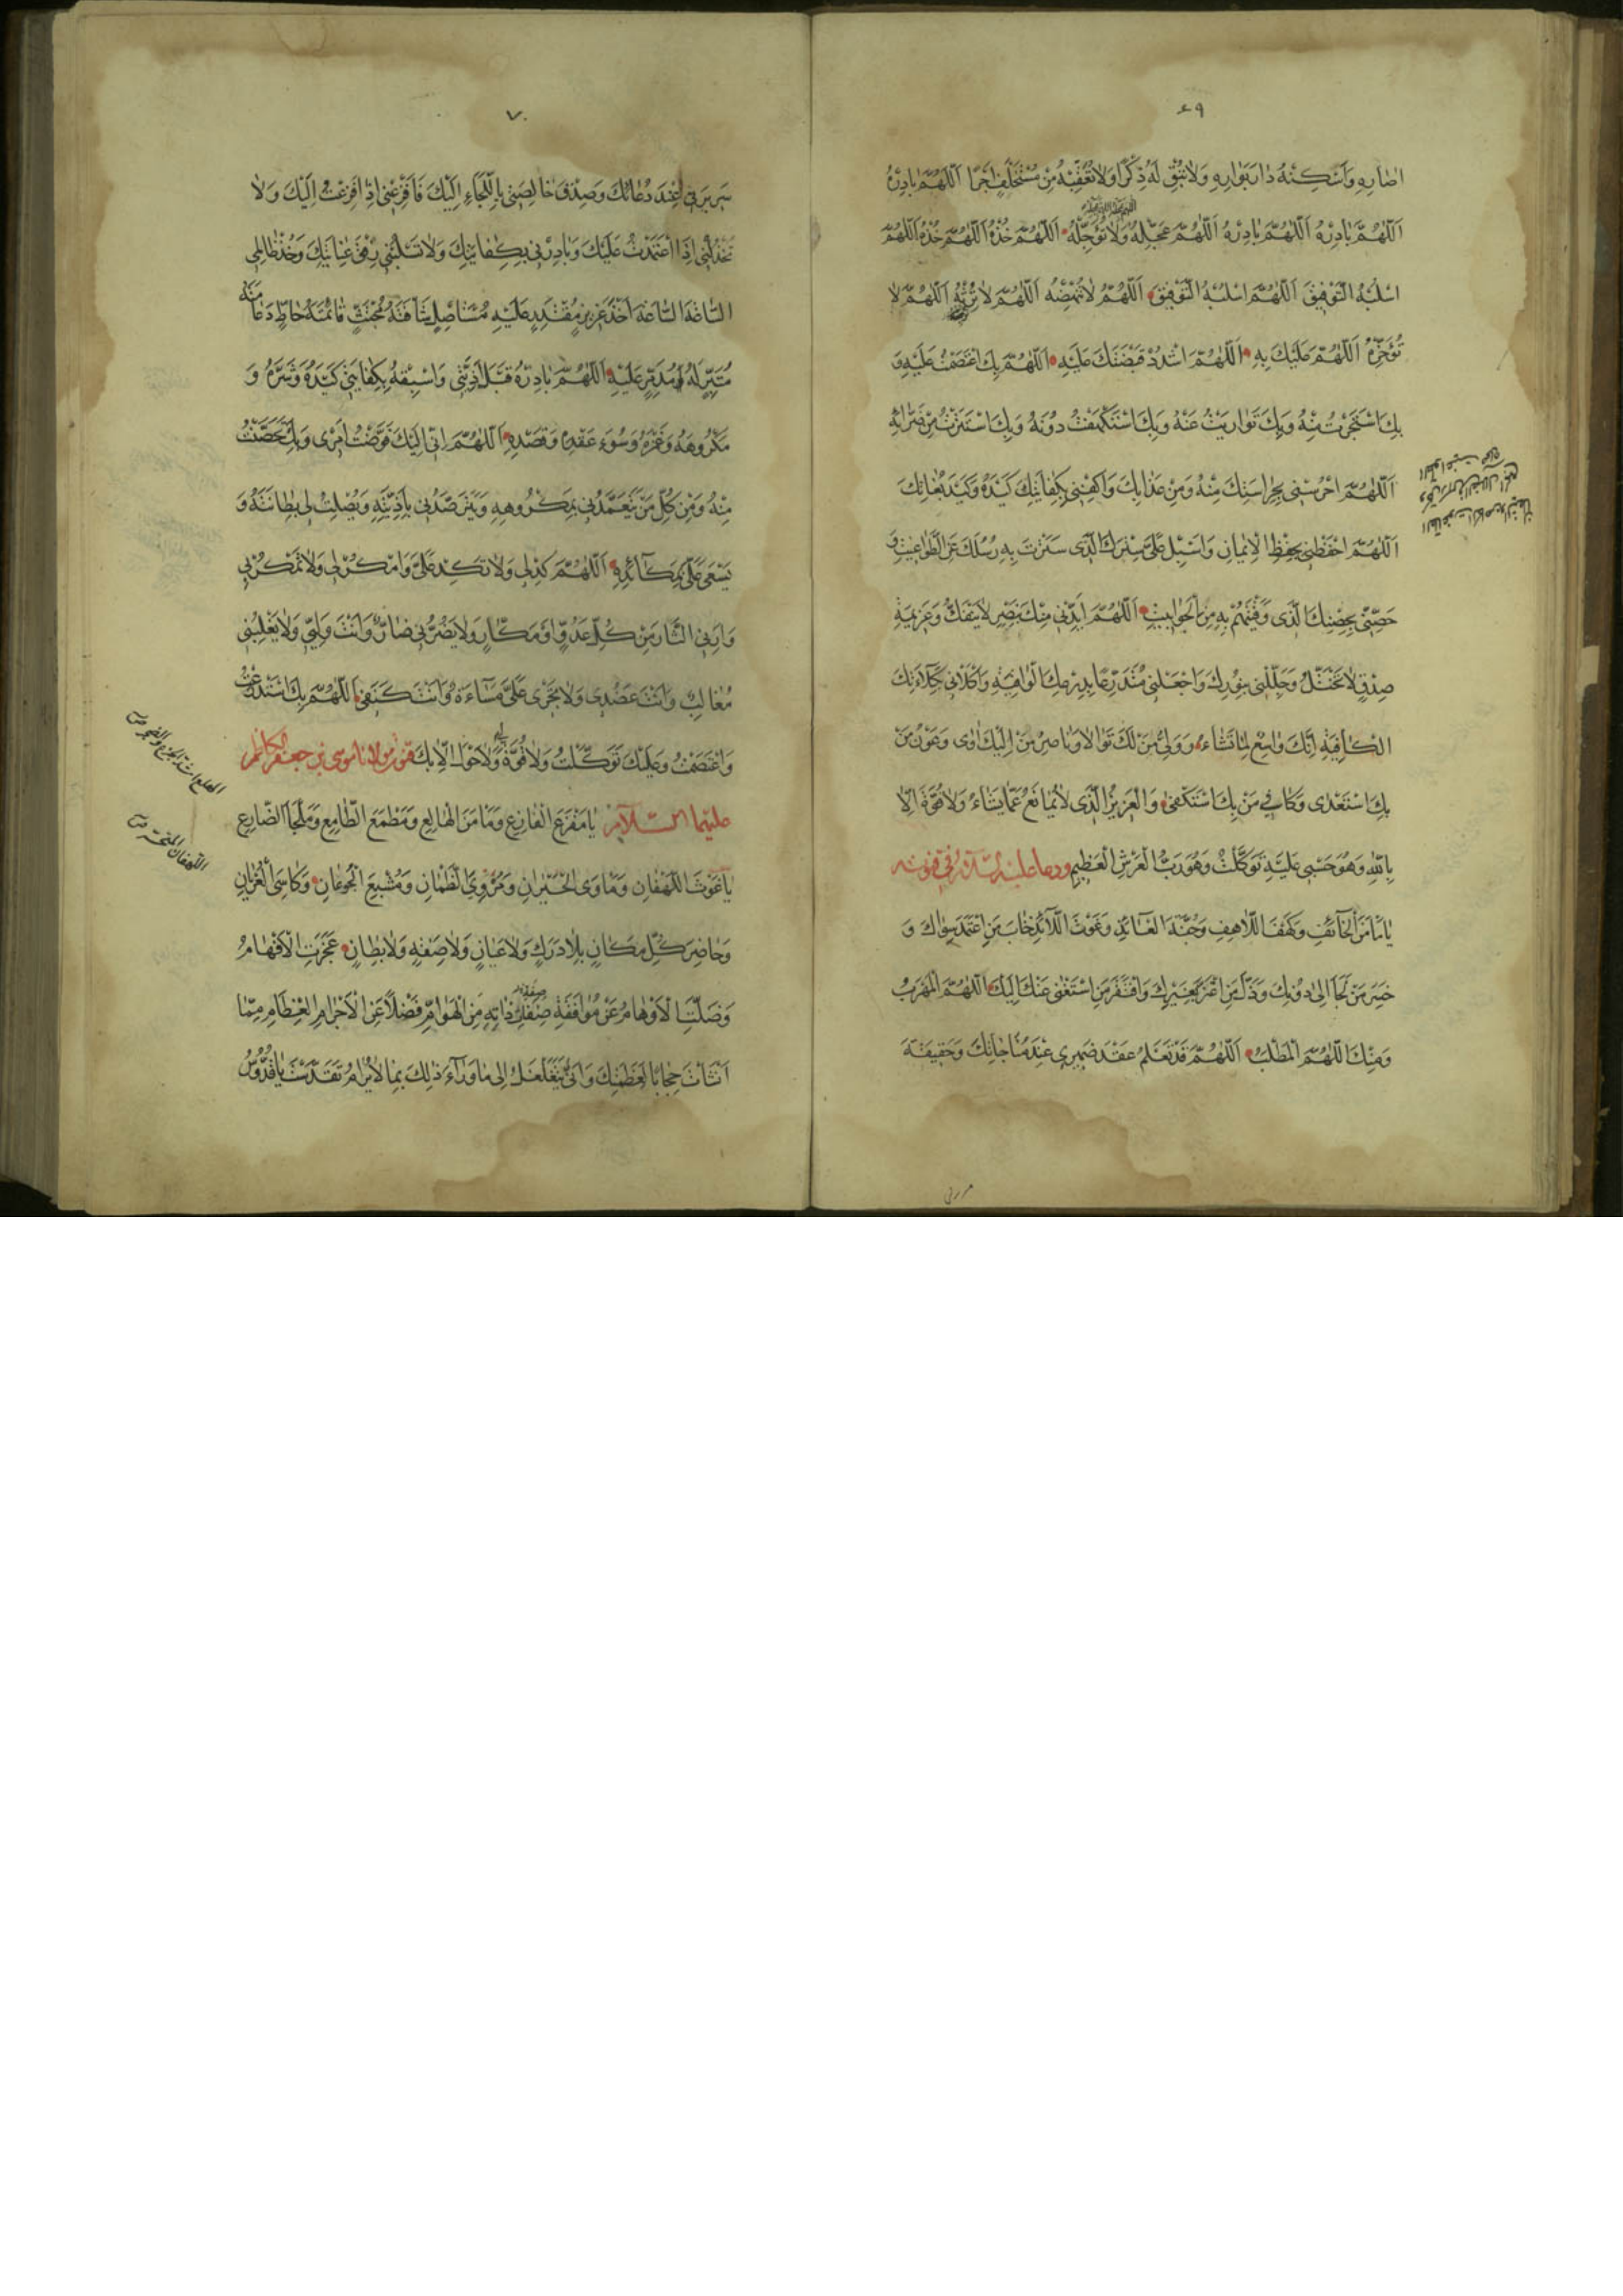 ٤٩
اضراره واسكنه دار بواره ولا تبق له ذكرا ولا تعقبه من مستخلف اجرا اللهم بادره
اللهم بادره اللهم بادره اللهم بادره اللهم عجله ولا تؤجله اللهم خذه اللهم خذه اللهم
اسلبه التوفيق اللهم اسلبه التوفيق اللهم لا تنهضه اللهم لا ترثه اللهم لا
تؤخره اللهم عليك به اللهم اشدد قبضتك عليه اللهم بك اعتصمت عليه و
بك استجرت منه وبك تواريت عنه وبك استكهفت دونه وبك استترت من ضرائه
اللهم احرسنى بحراستك منه ومن عذابك واكفنى بكفايتك كيده وكيد بغاتك
اللهم احفظنى بحفظ الايمان واسبل على سترك الذى سترت به رسلك عن الطواغيت و
حصنى بحصنك الذى وقيتهم به من الجوابيت اللهم ايدنى منك بنصر لا ينفك وعزيمة
صدق لا تختل وجللنى بنورك واجعلنى متدرعا بدرعك الواقية واكلأنى بكلاءتك
الكافية انك واسع لما تشاء وولى من لك توالا وناصر من اليك اوى وعون من
بك استعدى وكافى من بك استكفى والعزيز الذى لا يمانع عما يشاء ولا قوة الا
بالله وهو حسبى عليه توكلت وهو رب العرش العظيم ودعا عليه السلام فى قنوته
يا مامن الخائف وكهف اللاهف وجنة العائذ وغوث اللائذ خاب من اعتمد سواك و
خسر من لجأ الى دونك وذل من اعتز بغيرك وافتقر من استغنى عنك اليك اللهم المهرب
ومنك اللهم المطلب اللهم قد تعلم عقد ضميرى عند مناجاتك وحقيقة
٧٠
سريرتى عند دعائك وصدق خالصتى باللجاء اليك فافزعنى اذا فزعت اليك ولا
تخذلنى اذا اعتمدت عليك وبادرنى بكفايتك ولا تسلبنى رفق عنايتك وخذ ظالمى
الساعة الساعة اخذ عزيز مقتدر عليه مستاصل شافته مجتث قائمته حاط دعامته
متبر له مدمر عليه اللهم بادره قبل اذيتى واسبقه بكفايتى كيده وشره و
مكروهه وغمزه وسوء عقده وقصده اللهم انى اليك فوضت امرى وبك تحصنت
منه ومن كل من يتعمدنى بمكروهه ويترصدنى باذيته ويصلت لى بطانته و
يسعى على بمكائده اللهم كد لى ولا تكد على وامكر لى ولا تمكر بى
وارنى الثار من كل عدو او مكار ولا يضرنى ضار وانت وليى ولا يغلبنى
مغالب وانت عضدى ولا تجرى على مساءة وانت كنفى اللهم بك استذرعت
واعتصمت وعليك توكلت ولا قوة ولا حول الا بك قنوت مولانا موسى بن جعفر الكاظم
عليهما السلام يا مفزع الفازع ومامن الهالع ومطمع الطامع وملجأ الضارع
يا غوث اللهفان وماوى الحيران ومروى الظمان ومشبع الجوعان وكاسى العريان
وحاضر كل مكان بلا درك ولا عيان ولا صفة ولا بطان عجزت الافهام
وضلت الاوهام عن موافقة صفة دابة من الهوام فضلا عن الاجرام العظام مما
انشأت حجابا لعظمتك وانى يتغلغل الى ما وراء ذلك بما لا يرام تقدست يا قدوس